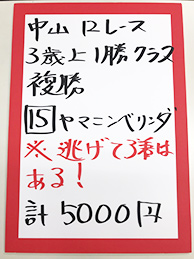 中山 12レース
3歳上1勝クラス
複勝
15 ヤマニンベリンダ
※逃げて3着は
ある!
計 5000円